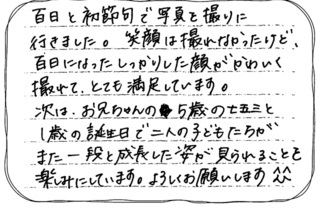 百日と初節句で写真を撮りに
行きました。笑顔は撮れなかったけど、
百日になったしっかりした顔がかわいく
撮れて、とても満足しています。
次は、お兄ちゃんの5歳の七五三と
1歳の誕生日で二人の子どもたちが
また一段と成長した姿が見られることを
楽しみにしています。よろしくお願いします^^